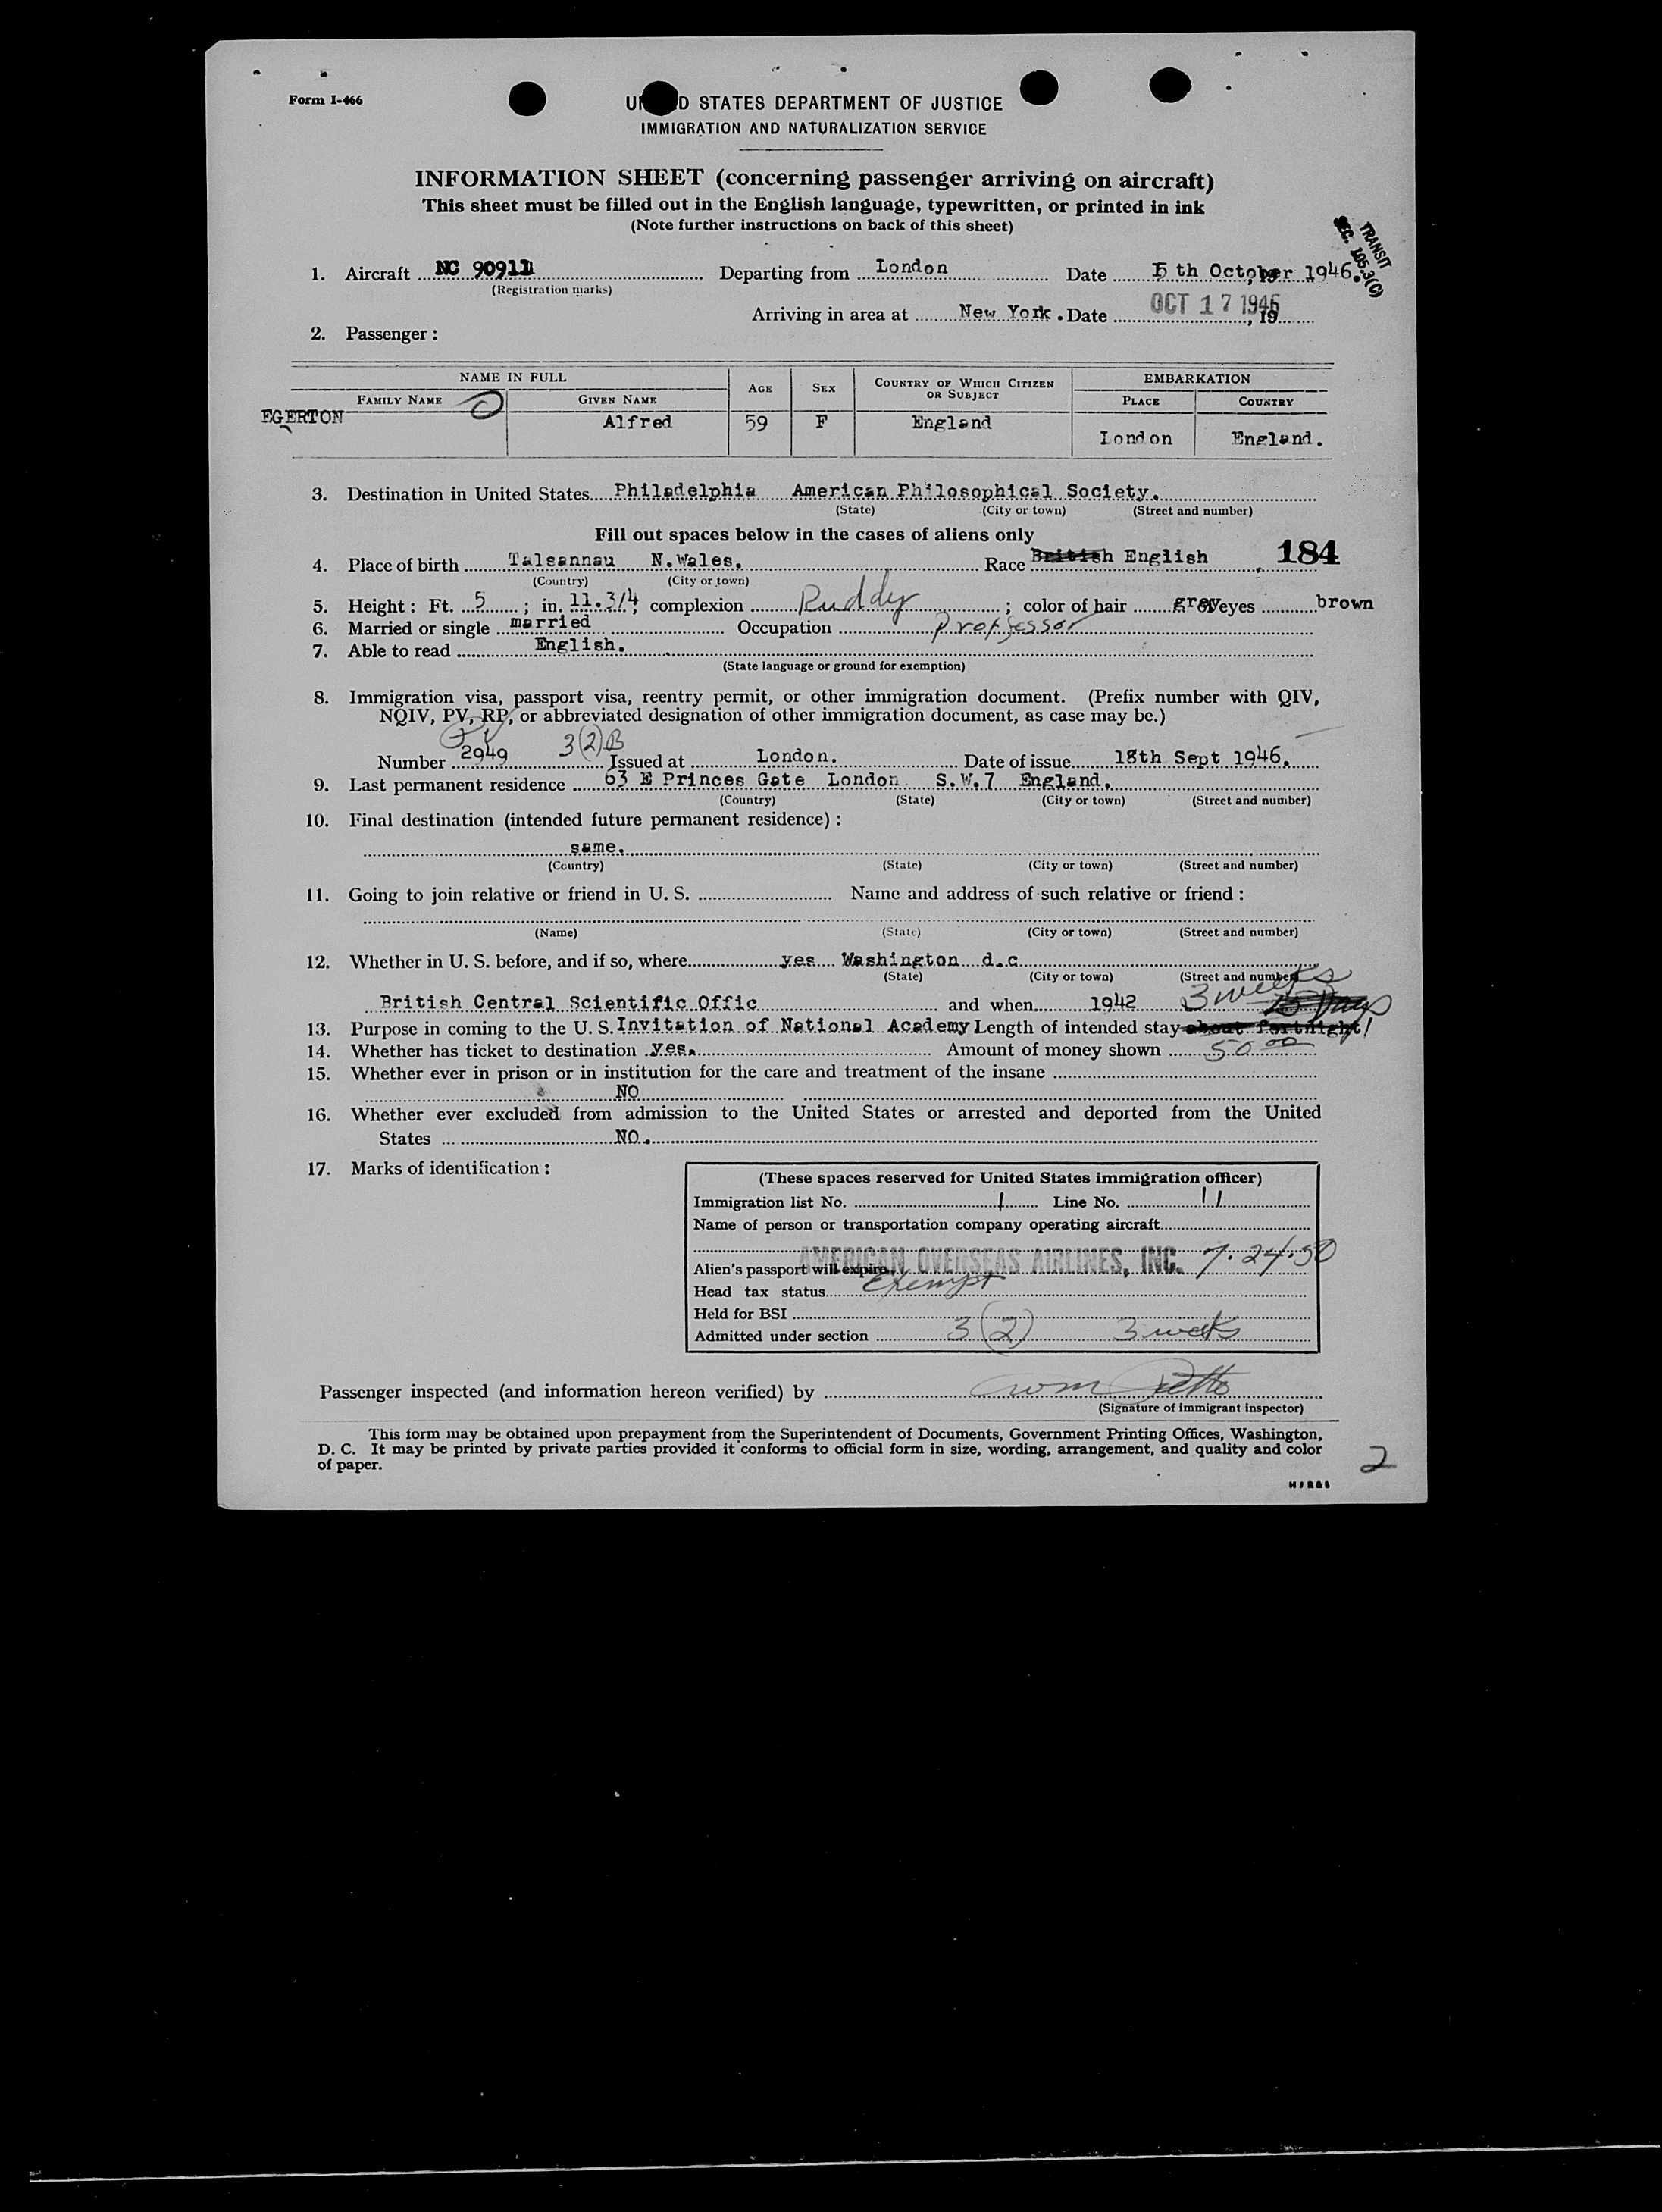 Form I-466
U D STATES DEPARTMENT OF JUSTICE
IMMIGRATION AND NATURALIZATION SERVICE
INFORMATION SHEET (concerning passenger arriving on aircraft)
This sheet must be filled out in the English language, typewritten, or printed in ink
(Note further instructions on back of this sheet)
TRANSIT
SEC. 105.3(C)
1. Aircraft NC 90911 Departing from London Date 15 th October 1946.
(Registration marks)
Arriving in area at New York. Date OCT 17 1946, 19
2. Passenger:
NAME IN FULL AGE SEX COUNTRY OF WHICH CITIZEN OR SUBJECT EMBARKATION
FAMILY NAME GIVEN NAME PLACE COUNTRY
EGERTON Alfred 59 F England London England.
3. Destination in United States Philadelphia American Philosophical Society.
(State) (City or town) (Street and number)
Fill out spaces below in the cases of aliens only
4. Place of birth Talsannau N.Wales. Race British English 184
(Country) (City or town)
5. Height: Ft. 5; in. 11.3/4; complexion Ruddy; color of hair grey eyes brown
6. Married or single married Occupation Professor
7. Able to read English.
(State language or ground for exemption)
8. Immigration visa, passport visa, reentry permit, or other immigration document. (Prefix number with QIV,
NQIV, PV, RP, or abbreviated designation of other immigration document, as case may be.)
PV 3(2)B
Number 2949 Issued at London. Date of issue 18th Sept 1946.
9. Last permanent residence 63 E Princes Gate London S.W.7 England.
(Country) (State) (City or town) (Street and number)
10. Final destination (intended future permanent residence):
same.
(Country) (State) (City or town) (Street and number)
11. Going to join relative or friend in U. S. Name and address of such relative or friend:
(Name) (State) (City or town) (Street and number)
12. Whether in U. S. before, and if so, where yes Washington d.c.
(State) (City or town) (Street and number)
British Central Scientific Offic and when 1942 3 weeks 15 Days
13. Purpose in coming to the U. S. Invitation of National Academy Length of intended stay about fortnight
14. Whether has ticket to destination yes. Amount of money shown 50 00
15. Whether ever in prison or in institution for the care and treatment of the insane
NO
16. Whether ever excluded from admission to the United States or arrested and deported from the United
States NO.
17. Marks of identification:
(These spaces reserved for United States immigration officer)
Immigration list No. 1 Line No. 11
Name of person or transportation company operating aircraft
AMERICAN OVERSEAS AIRLINES, INC.
Alien's passport will expire 7-24-50
Head tax status Exempt
Held for BSI
Admitted under section 3(2) 3 weeks
Passenger inspected (and information hereon verified) by
(Signature of immigrant inspector)
This form may be obtained upon prepayment from the Superintendent of Documents, Government Printing Offices, Washington,
D. C. It may be printed by private parties provided it conforms to official form in size, wording, arrangement, and quality and color
of paper.
2